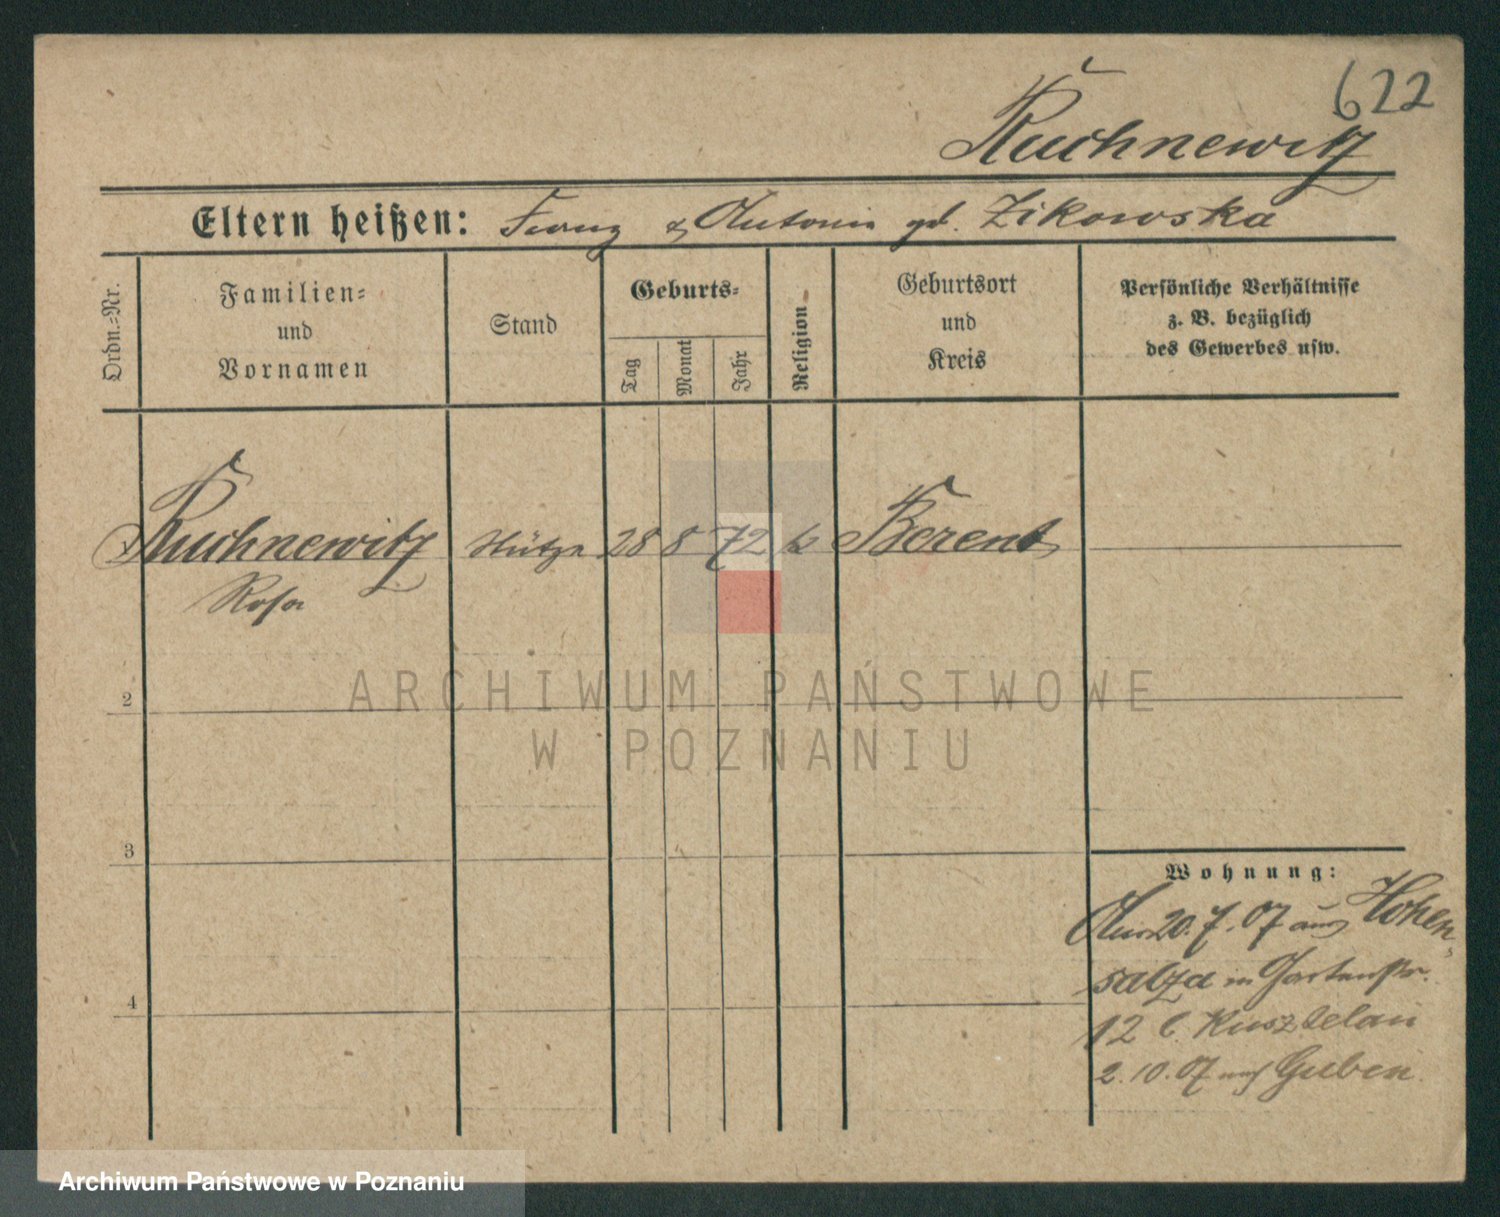 622
Kuchnewitz
Eltern heißen: Franz & Antonie geb. Zikowska
Ordn.-Nr.
Familien-
und
Vornamen
Stand
Geburts-
Tag
Monat
Jahr
Religion
Geburtsort
und
Kreis
Persönliche Verhältnisse
z. B. bezüglich
des Gewerbes usw.
Kuchnewitz Stütze 28 8 72 k Berent
Rosa
ARCHIWUM PAŃSTWOWE
W POZNANIU
2
3
4
Wohnung:
20.7.07 aus Hohen-
salza in Gartenstr.
12 b.
2.10.07 nach Guben
Archiwum Państwowe w Poznaniu